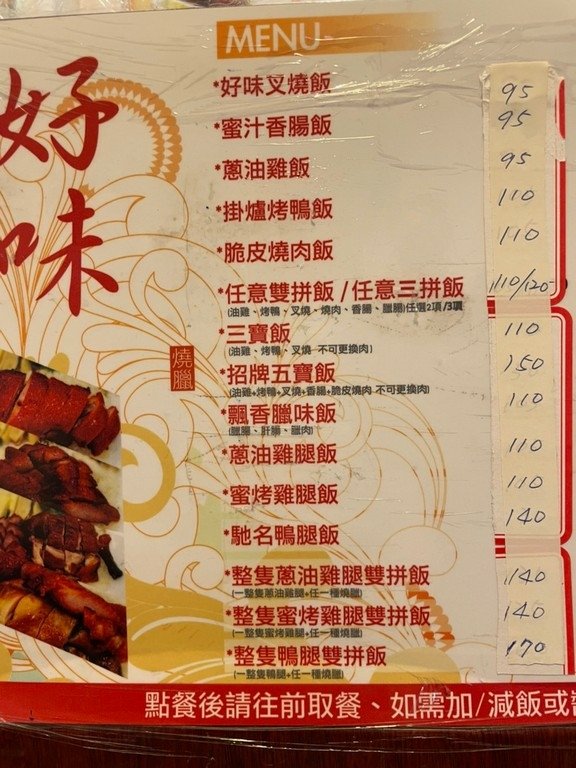 好味
MENU
*好味叉燒飯 95
*蜜汁香腸飯 95
*蔥油雞飯 95
*掛爐烤鴨飯 110
*脆皮燒肉飯 110
*任意雙拼飯/任意三拼飯 110/120
(油雞、烤鴨、叉燒、燒肉、香腸、臘腸)任選2項/3項
*三寶飯 110
(油雞、烤鴨、叉燒 不可更換肉)
燒臘
*招牌五寶飯 150
(油雞+烤鴨+叉燒+香腸+脆皮燒肉 不可更換肉)
*飄香臘味飯 110
(臘腸、肝腸、臘肉)
*蔥油雞腿飯 110
*蜜烤雞腿飯 110
*馳名鴨腿飯 140
*整隻蔥油雞腿雙拼飯 140
(一整隻蔥油雞腿+任一種燒臘)
*整隻蜜烤雞腿雙拼飯 140
(一整隻蜜烤雞腿+任一種燒臘)
*整隻鴨腿雙拼飯 170
(一整隻鴨腿+任一種燒臘)
點餐後請往前取餐、如需加/減飯或